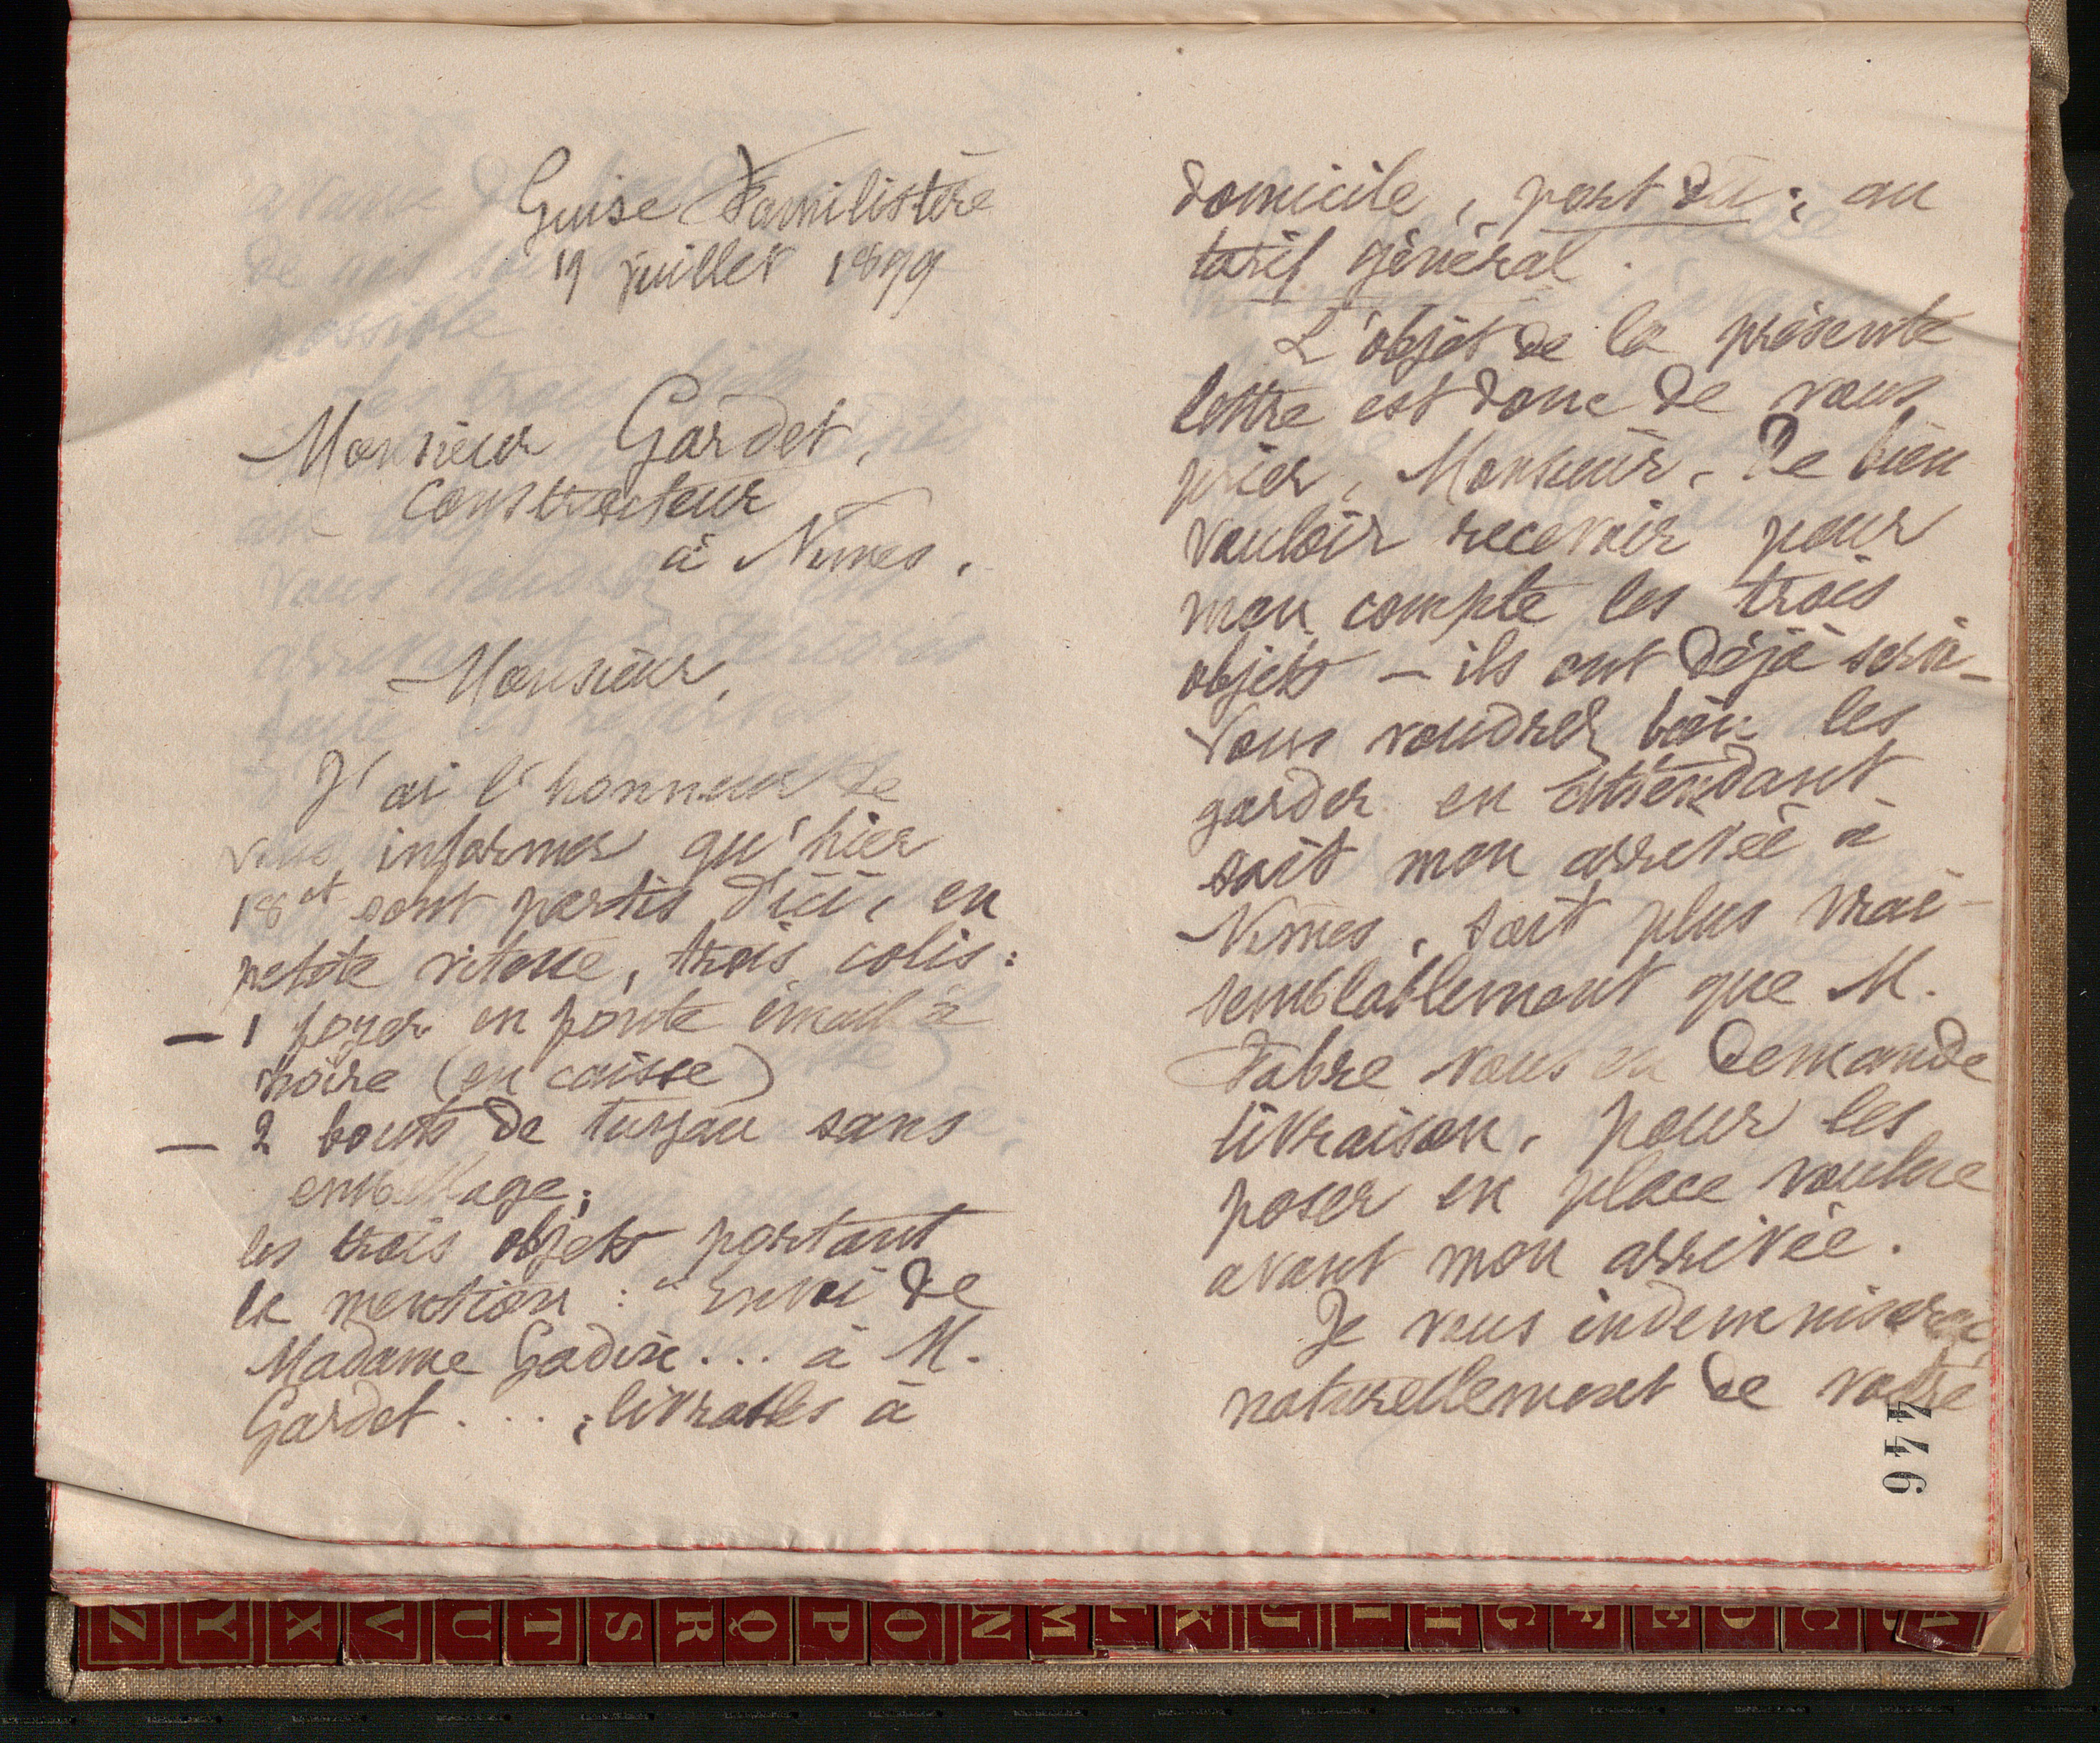 Guise Familistère
19 juillet 1899
Monsieur Gardet,
constructeur
à Nimes.
Monsieur,
J'ai l'honneur de
vous informer qu'hier
18 ct sont partis d'ici, en
petite vitesse, trois colis :
— 1 foyer en fonte émaillée
noire (en caisse)
— 2 bouts de tuyau sans
emballage ;
les trois objets portant
la mention : "Envoi de
Madame Godin... à M.
Gardet . . . ; livrables à
domicile, port dû ; au
tarif général.
L'objet de la présente
lettre est donc de vous
prier, Monsieur, de bien
vouloir recevoir pour
mon compte les trois
objets — ils ont déjà servi —
Vous voudrez bien les
garder en attendant
soit mon arrivée à
Nîmes, soit plus vrai-
semblablement que M.
Fabre vous en demande
livraison, pour les
poser en place voulue
avant mon arrivée.
Je vous indemniserai
naturellement de votre
446
Z Y X V U T S R Q P O N M L K J I H G F E D C B A